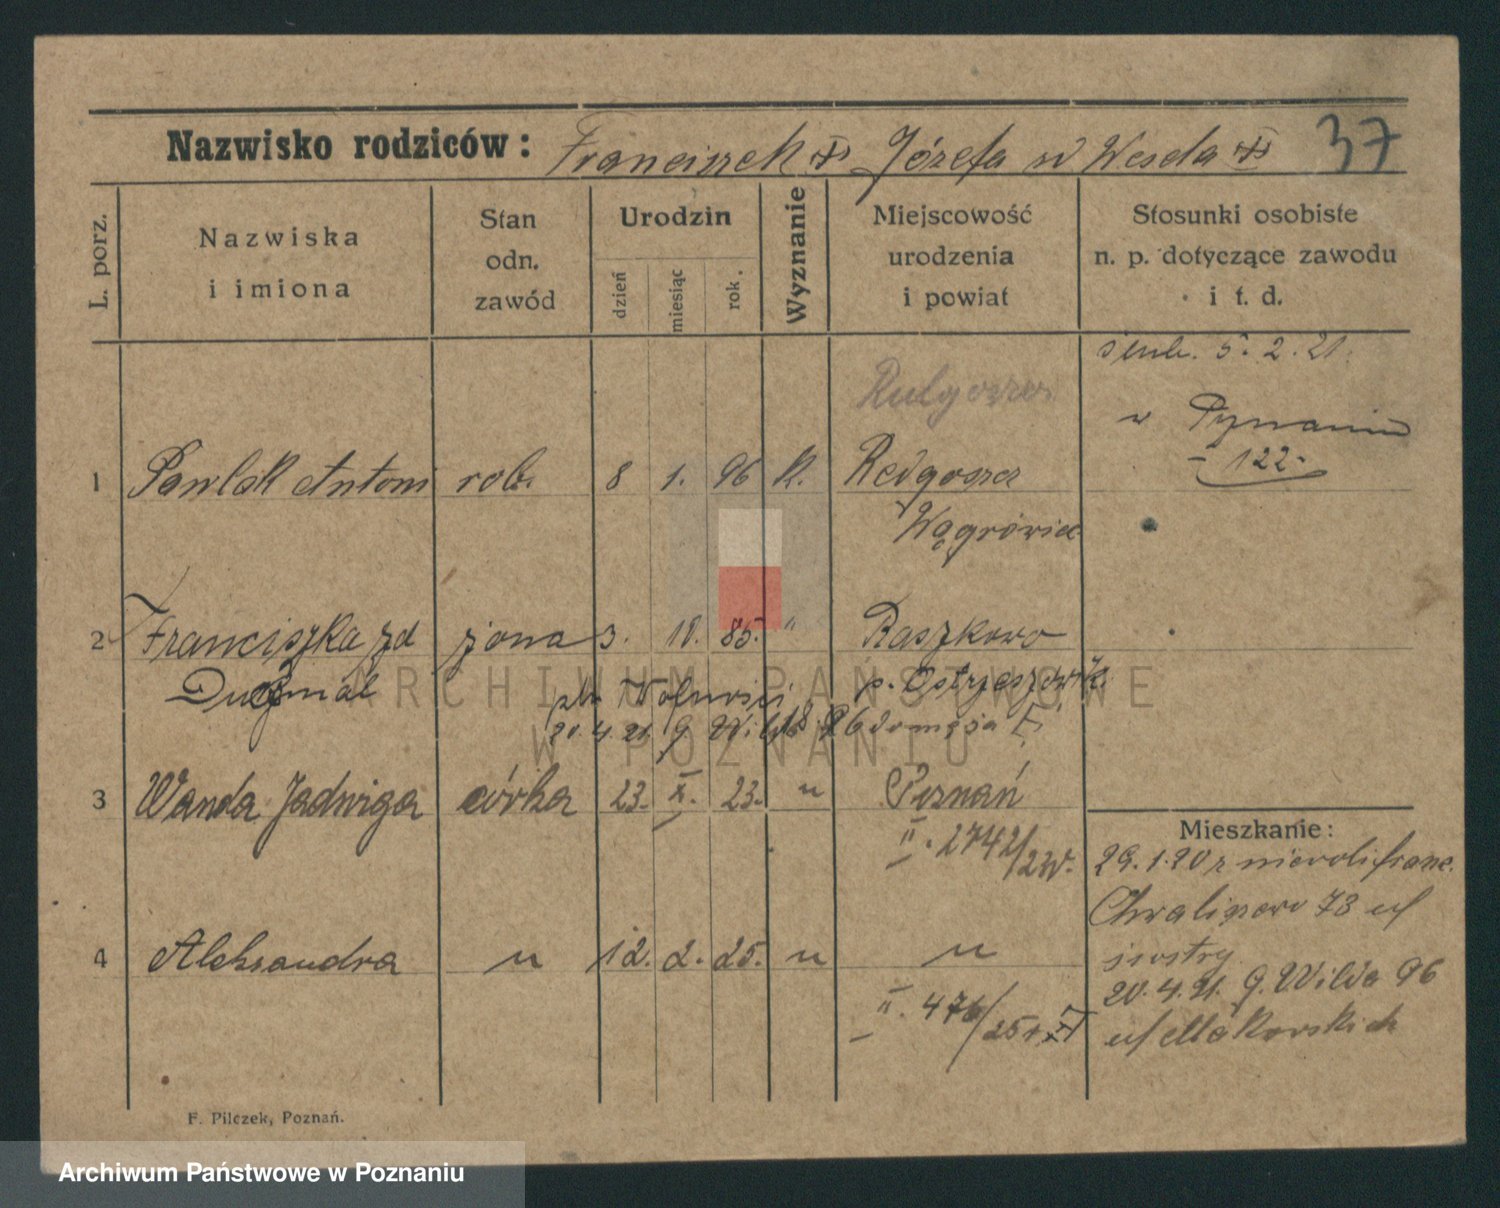 Nazwisko rodziców: Franciszek Józefa w Weseła 37
L. porz.
Nazwiska
i imiona
Stan
odn.
zawód
Urodzin
dzień
miesiąc
rok.
Wyznanie
Miejscowość
urodzenia
i powiat
Stosunki osobiste
n. p. dotyczące zawodu
i t. d.
ślub. 5. 2. 21.
w Poznaniu
- 122 -
1 Pawlak Antoni rob. 8 1. 96 k. Redgoszcz
Wągrówiec
2 Franciszka zd żona 3. 85. " Raszkowo
p. Ostrzeszów
20.4.21 G. Wilda 96
3 Wanda Jadwiga córka 23. X. 23. " Poznań
II. 2742/23r.
Mieszkanie:
29.1.20 r
Chwaliszewo 73 u/
siostry
20.4.21. G. Wilda 96
u/ Makorskich
4 Aleksandra " 12. 2. 25. " "
II. 476/25r
F. Pilczek, Poznań.
ARCHIWUM PAŃSTWOWE
W POZNANIU
Archiwum Państwowe w Poznaniu